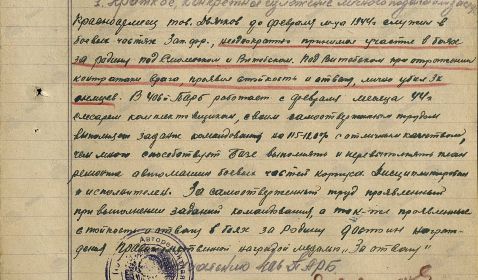 Краткое, конкретное изложение личного подвига
Красноармеец тов. Дьячков до февраля м-ца 1944г. служил в
боевых частях Зап. фр., неоднократно принимал участие в боях
за родину под Смоленском и Витебском. Под Витебском при отражении
контратаки врага, проявил стойкость и отвагу, лично убил 3х
немцев. В ПАРБ работает с февраля месяца 44г.
слесарем комплектовщиком, своим самоотверженным трудом
выполняет задание командования на 115-120% с отличным качеством,
чем много способствует базе выполнять и перевыполнять план
ремонта автомашин боевых частей корпуса. Дисциплинирован
и исполнителен. За самоотверженный труд проявленный
при выполнении заданий командования, а так-же проявленные
стойкость и отвагу в боях за Родину достоин награж-
дения Правительственной наградой медаль "За отвагу"
ПАРБ